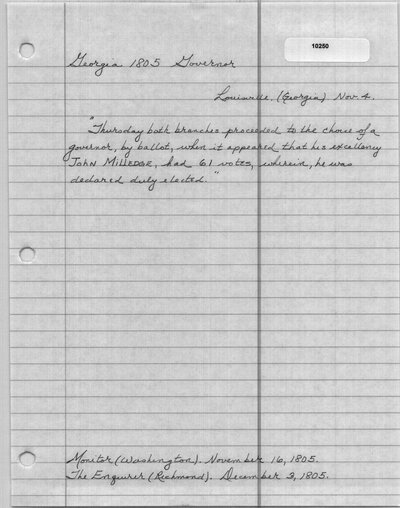 10250
Georgia 1805 Governor
Louisville (Georgia). Nov. 4.
"Thursday both branches proceeded to the choice of a
governor, by ballot, when it appeared that his excellency
JOHN MILLEDGE, had 61 votes, wherein, he was
declared duly elected."
Monitor (Washington). November 16, 1805.
The Enquirer (Richmond). December 3, 1805.